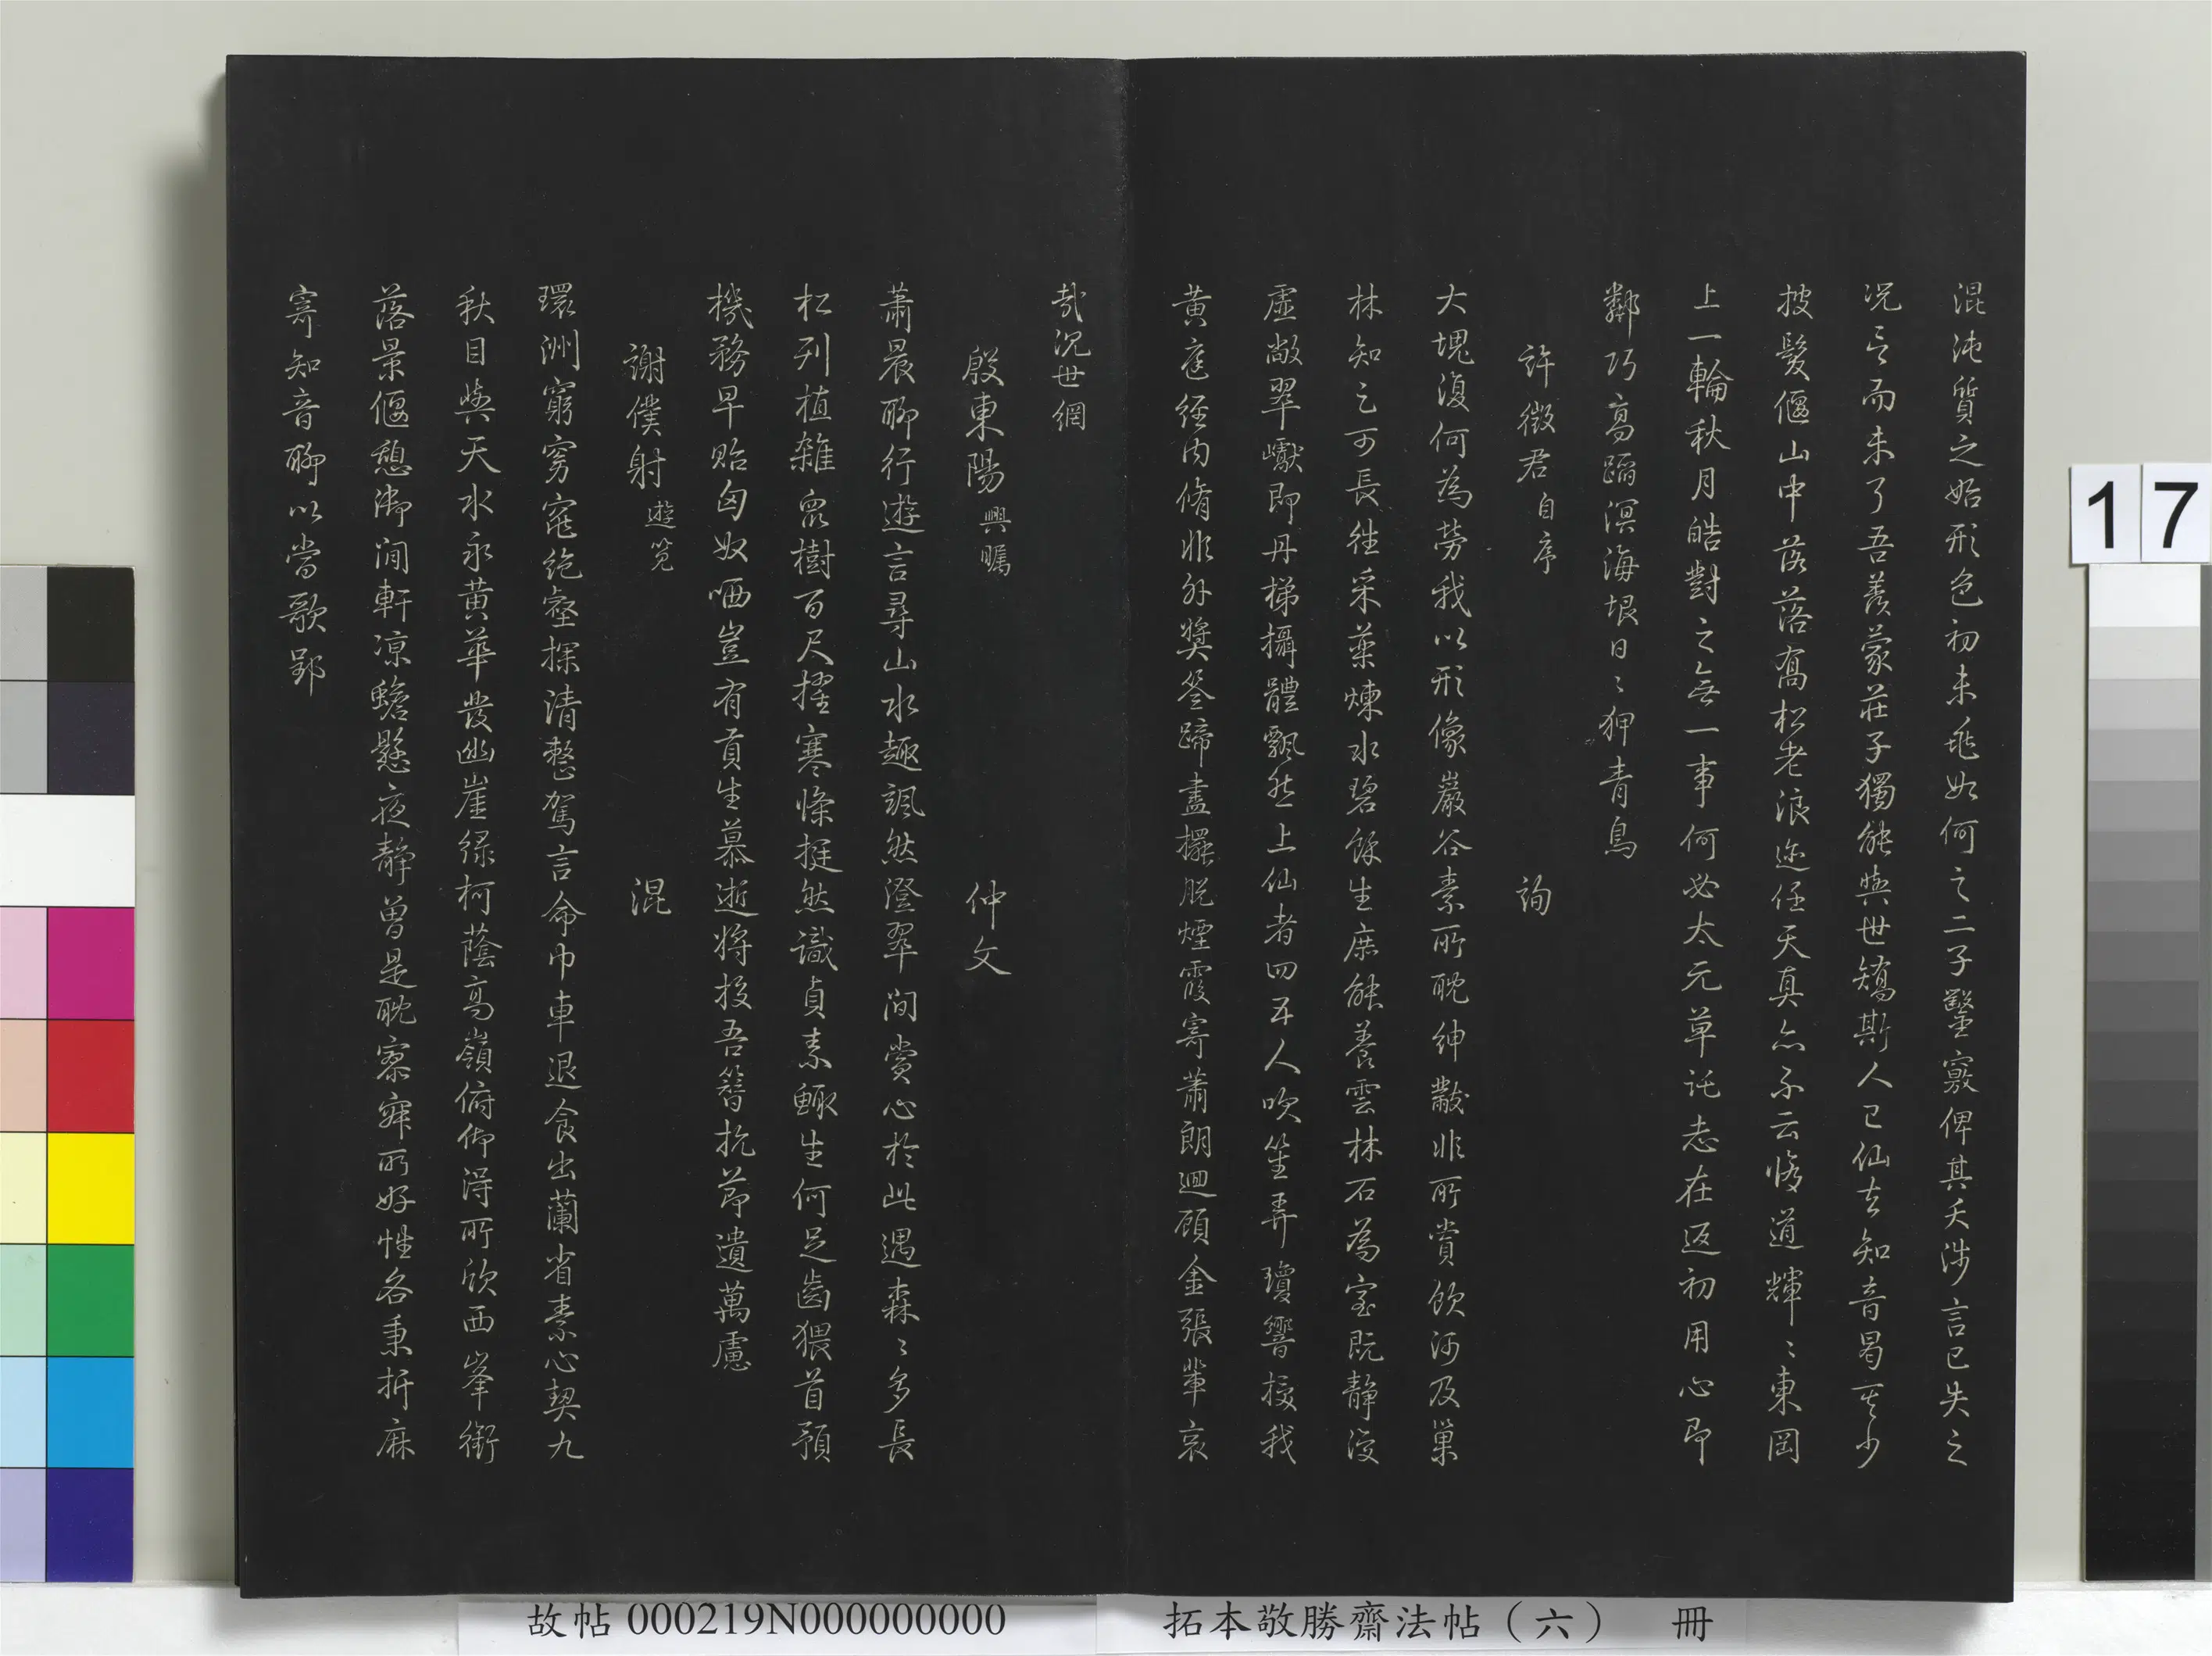 混沌質之始形色初未兆如何之二子鑿竅俾其夭涉言已失之
況言而未了吾羨蒙莊子獨能與世矯斯人已仙去知音曷其少
披髮偃山中落落喬松老浪跡任天真亦不云脩道輝〻東岡
上一輪秋月皓對之無一事何必太元草託志在返初用心即
鄰巧高蹈溟海垠日〻狎青鳥
許徵君自序 詢
大塊復何為勞我以形像巖谷素所耽紳黻非所賞飲河及巢
林知之可長往采藥煉水碧餘生庶能養雲林石為室既静復
虛敞翠巘即丹梯攝體飄然上仙者四五人吹笙弄瓊響授我
黃庭經内脩非外獎筌蹄盡擺脱煙霞寄蕭朗迴顧金張輩哀
哉沉世網
殷東陽興矚 仲文
蕭晨聊行遊言尋山水趣颯然澄翠間賞心於此遇森〻多長
松列植雜眾樹百尺擢寒條挺然識貞素鲰生何足齒猥首預
機務早貽匈奴哂豈有貢生慕逝將投吾簪抗節遺萬慮
謝僕射遊览 混
環洲窮窈窕絶壑探清整駕言命巾車退食出蘭省素心契九
秋目與天水永黄華發幽崖緑柯蔭高嶺俯仰得所欣西峯銜
落景偃憩御閒軒凉蟾懸夜静曽是耽寂寐所好性各秉折麻
寄知音聊以當歌郢
17
故帖 000219N000000000
拓本敬勝齋法帖（六） 冊